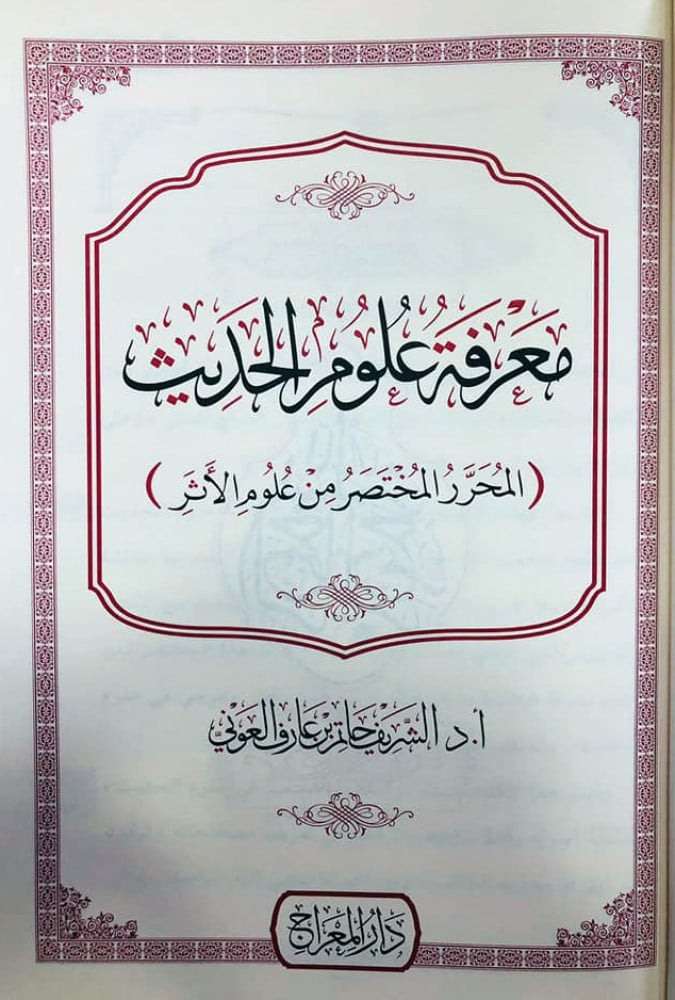 مَعْرِفَةُ عُلُومِ الحَدِيثِ
(المُحَرَّرُ المُخْتَصَرُ مِنْ عُلُومِ الأَثَرِ)
أ.د الشَّرِيف حَاتِم بن عَارِف العَونِيّ
دَارُ المِعْرَاجِ